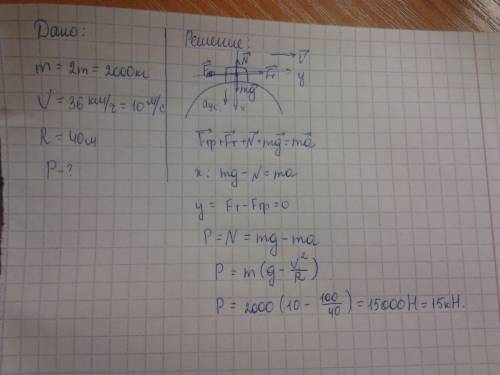 Дано:
m = 2т = 2000кг
V = 36 км/ч = 10 м/с
R = 40м
P - ?
Решение:
N⃗
V⃗
Fтр
Fт
y
mg⃗
aцс.
x
F⃗тр + F⃗т + N⃗ + mg⃗ = ma⃗
x: mg - N = ma
y = Fт - Fтр = 0
P = N = mg - ma
P = m(g - V²/R)
P = 2000(10 - 100/40) = 15000Н = 15кН.